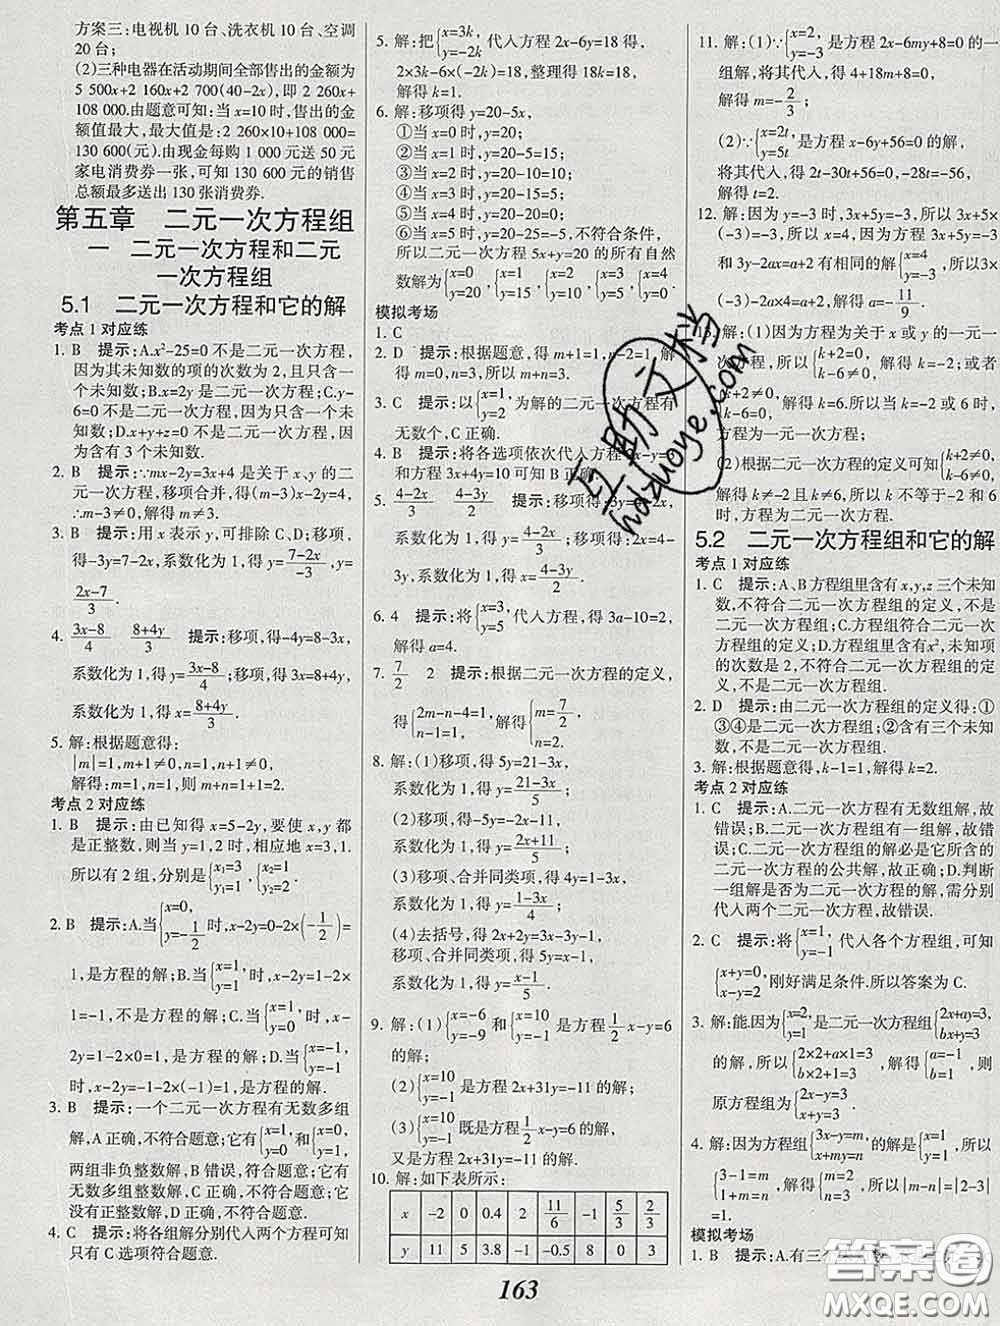 方案三:电视机 10 台、洗衣机 10 台、空调
20 台;
(2)三种电器在活动期间全部售出的金额为
5 500x+2 160x+2 700(40-2x),即 2 260x+
108 000.由题意可知:当 x=10 时,售出的金
额值最大,最大值是:2 260×10+108 000=
130 600(元).由现金每购 1 000 元送 50 元
家电消费券一张,可知 130 600 元的销售
总额最多送出 130 张消费券.
第五章 二元一次方程组
一 二元一次方程和二元
一次方程组
5.1 二元一次方程和它的解
考点 1 对应练
1. B 提示:A.x²-25=0 不是二元一次方程,
因为其未知数的项的次数为 2,且只含一
个未知数;B.x=2y 是二元一次方程;C.y-
6=0不是二元一次方程,因为只含一个未
知数;D.x+y+z=0不是二元一次方程,因
为含有 3 个未知数.
2. B 提示:∵mx-2y=3x+4 是关于 x、y 的二
元一次方程,移项合并,得(m-3)x-2y=4,
∴m-3≠0,解得 m≠3.
3. B 提示:用 x 表示 y,可排除 C、D;移项,
得-3y=7-2x,系数化为 1,得 y=(7-2x)/(-3),即
(2x-7)/3.
4. (3x-8)/4 (8+4y)/3 提示:移项,得-4y=8-3x,
系数化为 1,得 y=(3x-8)/4;移项,得3x=8+4y,
系数化为 1,得 x=(8+4y)/3.
5. 解:根据题意得:
|m|=1,m+1≠0,n=1,n+1≠0,
解得:m=1,n=1,则 m+n=1+1=2.
考点 2 对应练
1. B 提示:由已知得 x=5-2y,要使 x,y 都
是正整数,则当 y=1,2 时,相应地 x=3,1.
所以有 2 组,分别是{x₁=3 y₁=1,{x₂=1 y₂=2.
2. B 提示:A.当{x=0, y=-1/2 时,x-2y=0-2×(-1/2)=
1,是方程的解;B.当{x=1, y=1 时,x-2y=1-2×
1=-1,不是方程的解;C.当{x=1, y=0 时,x-
2y=1-2×0=1,是方程的解;D.当{x=-1, y=-1
时,x-2y=-1-2×(-1)=1,是方程的解.
3. B 提示:一个二元一次方程有无数多组
解,A 正确,不符合题意;它有{x=1, y=0 和{x=0, y=1
两组非负整数解,B 错误,符合题意;它有
无数多组整数解,C 正确,不符合题意;它
没有正整数解,D 正确,不符合题意.
4. C 提示:将各组解分别代入两个方程可知
只有 C 选项符合题意.
5. 解:把{x=3k, y=-2k 代入方程 2x-6y=18 得,
2×3k-6×(-2k)=18,整理得 18k=18,
解得 k=1.
6. 解:移项得 y=20-5x,
①当 x=0 时,y=20;
②当 x=1 时,y=20-5=15;
③当 x=2 时,y=20-10=10;
④当 x=3 时,y=20-15=5;
⑤当 x=4 时,y=20-20=0;
⑥当 x=5 时,y=20-25=-5,不符合条件,
所以二元一次方程 5x+y=20 的所有自然
数解为{x=0 y=20,{x=1 y=15,{x=2 y=10,{x=3 y=5,{x=4 y=0.
模拟考场
1. C
2. D 提示:根据题意,得 m+1=1,n-2=1,
解得 m=0,n=3,所以 m+n=3.
3. C 提示:以{x=1, y=2 为解的二元一次方程有
无数个,C 正确.
4. B 提示:将各选项依次代入方程 x-y=
和方程 3x+4y=10 可知 B 正确.
5. (4-2x)/3 (4-3y)/2 提示:移项得 3y=4-2x,
系数化为 1,得 y=(4-2x)/3;移项得:2x=4-
3y,系数化为 1,得 x=(4-3y)/2.
6. 4 提示:将{x=3, y=5 代入方程,得 3a-10=2,
解得 a=4.
7. 7/2 2 提示:根据二元一次方程的定义,
得{2m-n-4=1, n-1=1,解得{m=7/2, n=2.
8. 解:(1)移项,得 5y=21-3x,
系数化为 1,得 y=(21-3x)/5;
(2)移项,得-5y=-2x-11,
系数化为 1,得 y=(2x+11)/5;
(3)移项、合并同类项,得 4y=1-3x,
系数化为 1,得 y=(1-3x)/4;
(4)去括号,得 2x+2y=3x-3y-1,
移项、合并同类项,得 5y=x-1,
系数化为 1,得 y=(x-1)/5.
9. 解:(1){x=-6 y=-9 和{x=10 y=-1 是方程 1/2x-y=6
的解;
(2){x=10 y=-1 是方程 2x+31y=-11 的解;
(3){x=10 y=-1 既是方程 1/2x-y=6 的解,
又是方程 2x+31y=-11 的解.
10. 解:如下表所示:
x -2 0 0.4 2 11/6 -1 5/3 2/3
y 11 5 3.8 -1 -0.5 8 0 3
11. 解:(1)∵{x=2, y=-3 是方程 2x-6my+8=0 的一
组解,将其代入,得 4+18m+8=0,
解得 m=-2/3;
(2)∵{x=2t y=5t 是方程 x-6y+56=0 的解,
将其代入,得 2t-30t+56=0,-28t=-56,
解得 t=2.
12. 解:因为 y=-3,3x+5y=-3,所以 3x+5×
(-3)=-3,所以 x=4,因为方程 3x+5y=-3
和 3x-2ax=a+2 有相同的解{x=4, y=-3,所以 3×
(-3)-2×4a=a+2,解得 a=-11/9.
13. 解:(1)因为方程为关于 x 或 y 的一元一
次方程,所以{k+2=0, k-6≠0,解得 k=-2;或者
{k+2≠0, k-6=0,解得 k=6.所以当 k=-2 或 6 时,
方程为一元一次方程;
(2)根据二元一次方程的定义可知{k+2≠0, k-6≠0,
解得 k≠-2 且 k≠6,所以 k 不等于-2 和 6
时,方程为二元一次方程.
5.2 二元一次方程组和它的解
考点 1 对应练
1. C 提示:A、B方程组里含有 x,y,z 三个未知
数,不符合二元一次方程组的定义,不是
二元一次方程组;C.方程组符合二元一次
方程组的定义;D.方程组里含有x²,未知
项的次数是2,不符合二元一次方程组的定
义,不是二元一次方程组.
2. D 提示:由二元一次方程组的定义得:①
③④是二元一次方程组;②含有三个未知
数,不是二元一次方程组.
3. 解:根据题意,得 k-1=1,解得 k=2.
考点 2 对应练
1. C 提示:A.二元一次方程有无数组解,故
错误;B.二元一次方程组有一组解,故错
误;C.二元一次方程组的解必是它所含的
二元一次方程的公共解,故正确;D.判断
一组解是否为二元一次方程的解,需分别
代入两个二元一次方程,故错误.
2. C 提示:将{x=1, y=-1 代入各个方程组,可知
{x+y=0, x-y=2 刚好满足条件.所以答案为 C.
3. 解:能.因为{x=2, y=1 是二元一次方程组{2x+ay=3, bx+y=3
的解,所以{2×2+a×1=3 b×2+1=3,解得{a=-1, b=1.所以
原方程组为{2x-y=3 x+y=3.
4. 解:因为方程组{3x-y=m, x+my=n 的解是{x=1, y=1,所以
{3-1=m 1+m=n,解得{m=2 n=3,所以|m-n|=|2-3|
=1.
模拟考场
1. B 提示:A.有三个
163
互助文档
hdzuoye.com
答案圈
MXQE.COM